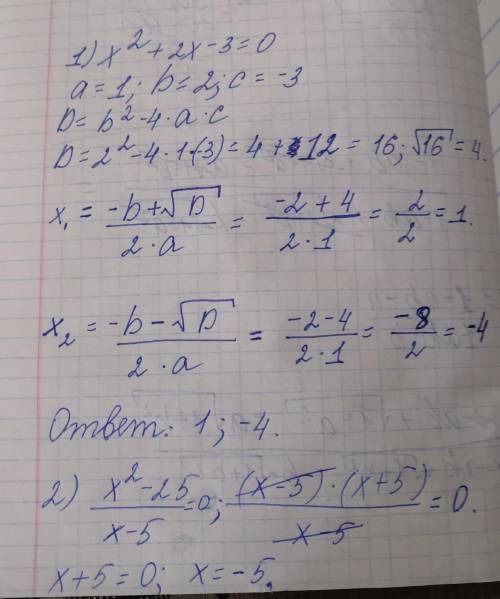 1) x²+2x-3=0
a=1; b=2; c=-3
D=b²-4·a·c
D=2²-4·1·(-3)=4+12=16; √16=4.
x₁ = (-b+√D)/(2·a) = (-2+4)/(2·1) = 2/2 = 1.
x₂ = (-b-√D)/(2·a) = (-2-4)/(2·1) = -8/2 = -4
Ответ: 1; -4.
2) (x²-25)/(x-5)=0; ((x-5)·(x+5))/(x-5)=0.
x+5=0; x=-5.